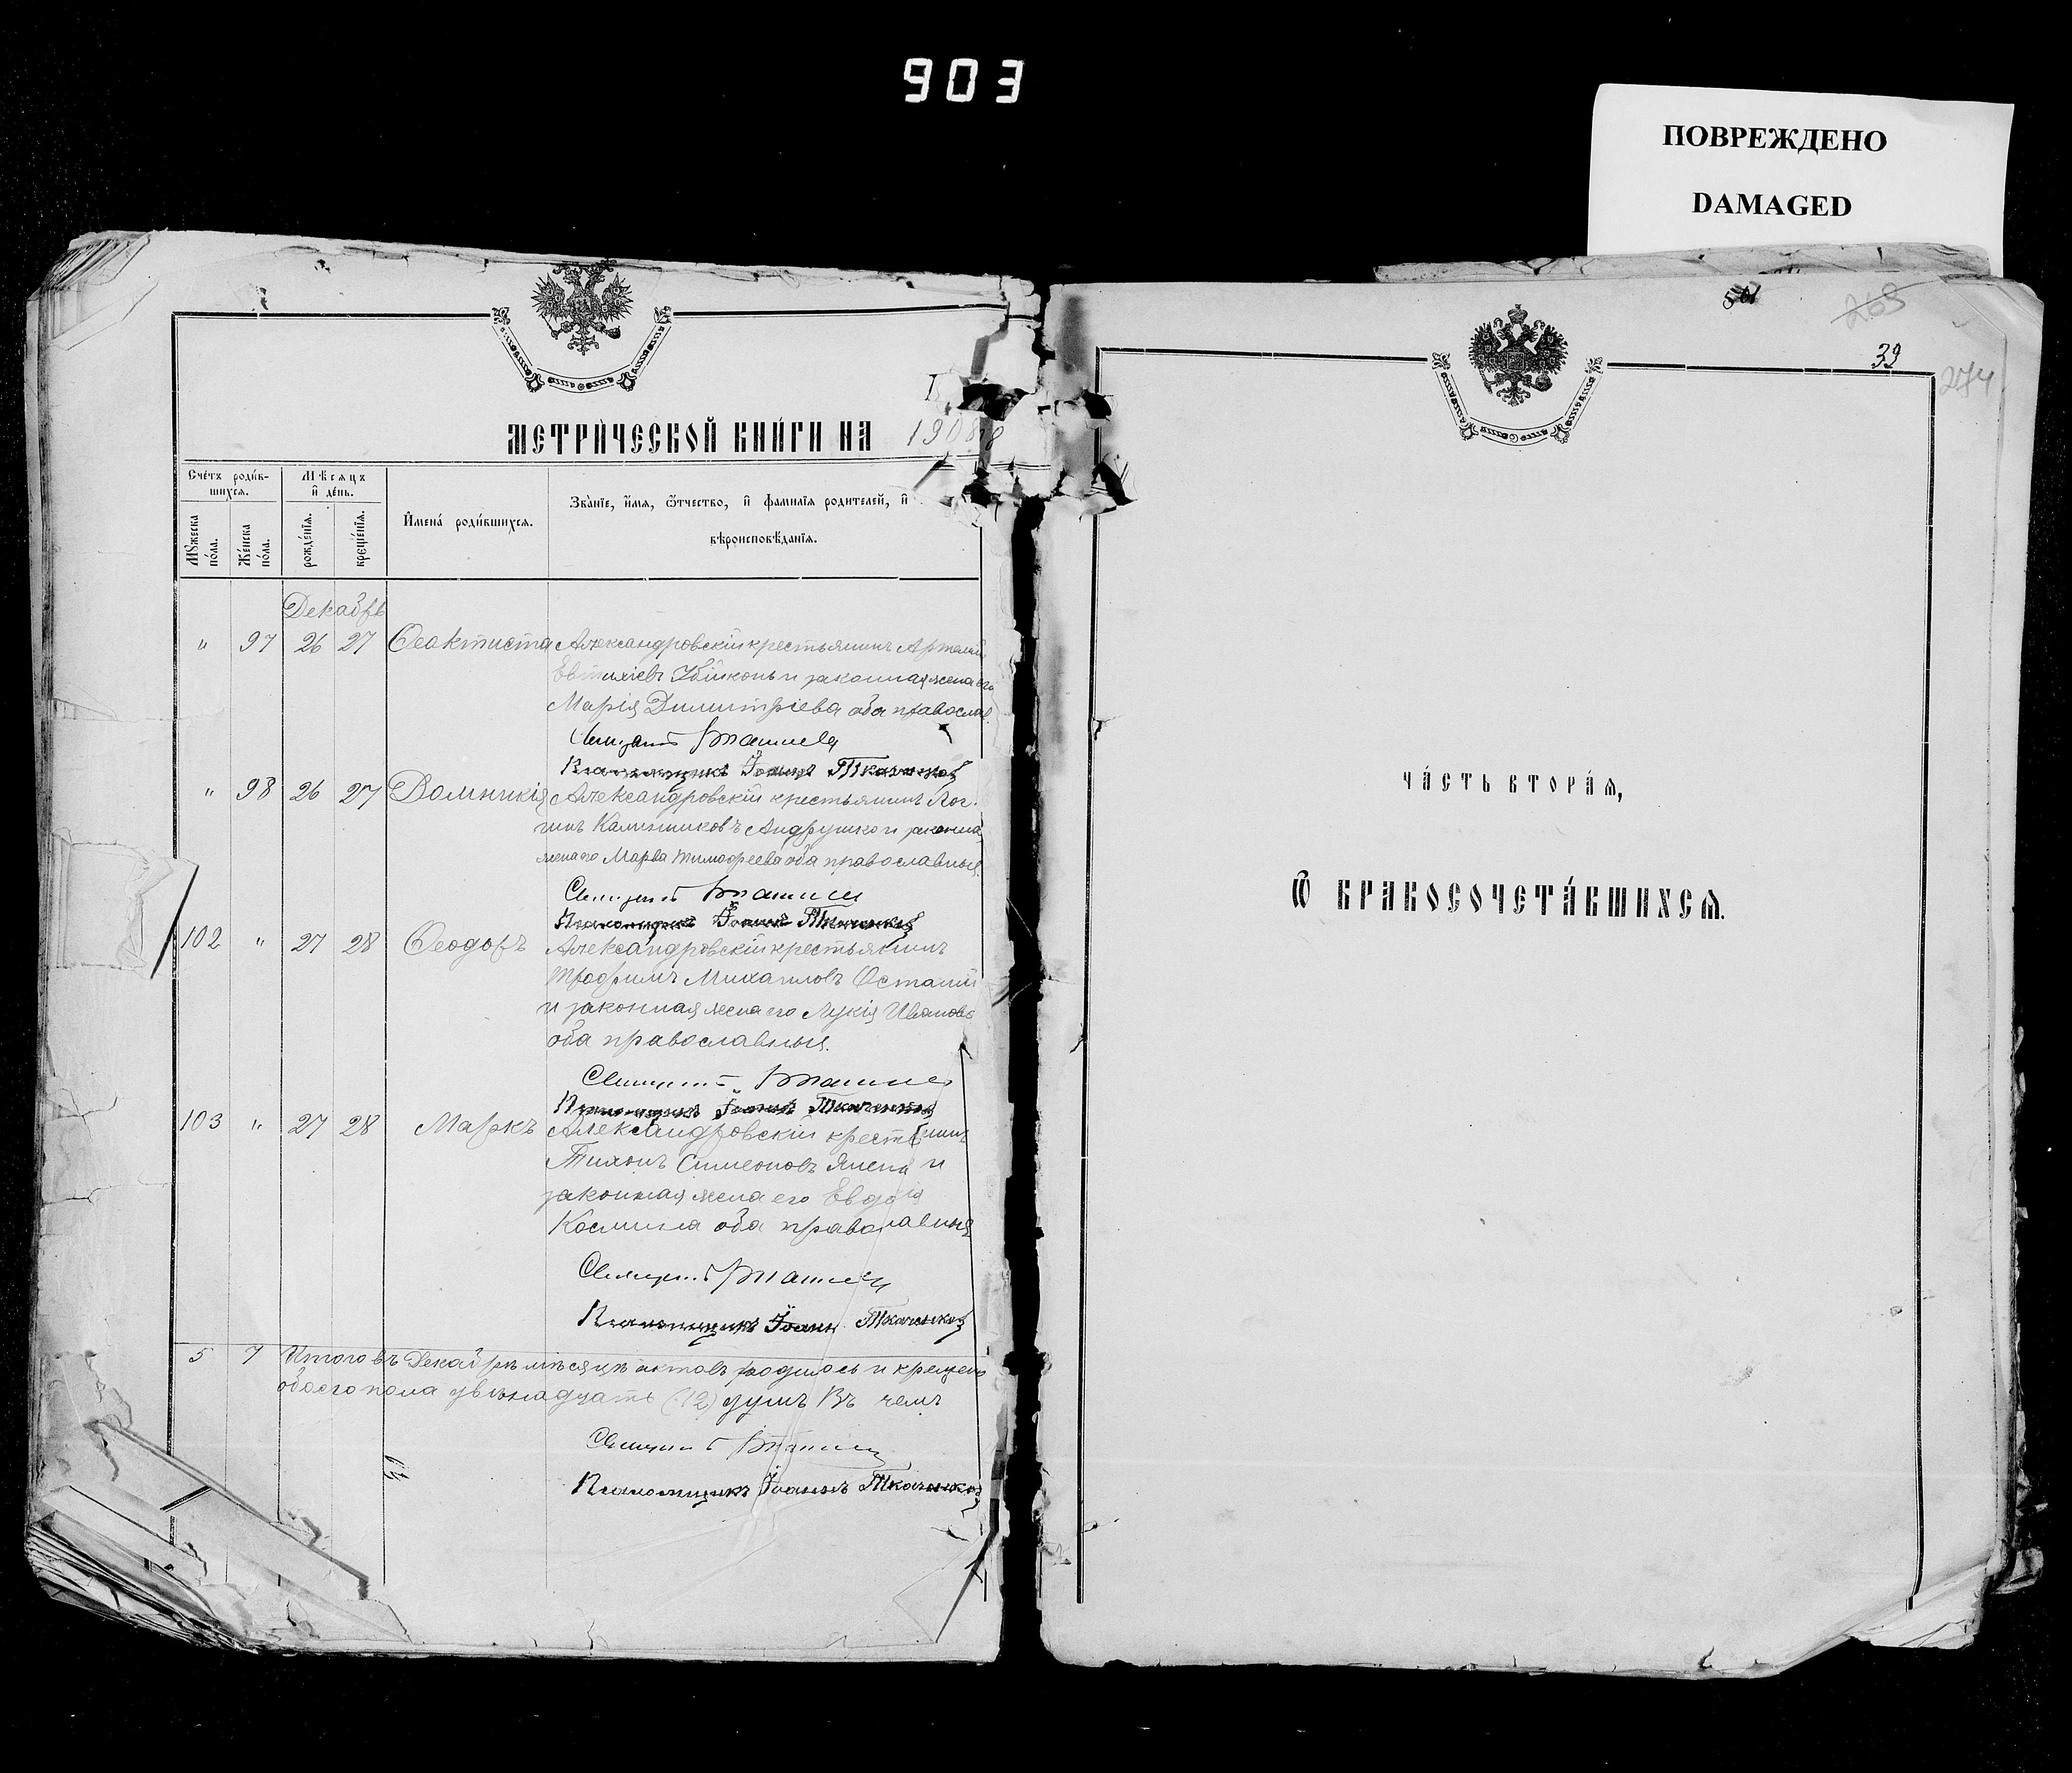 903
ПОВРЕЖДЕНО
DAMAGED
МЕТРИ́ЧЕСКОЙ КНИ́ГИ НА 1908
Сче́тъ роди́в-
шихся.
Мѣсяцъ
и҆ де́нь.
Мꙋжеска
по́ла.
Же́нска
по́ла.
рожде́нїя.
креще́нїя.
И҆мена́ роди́вшихся.
Зва́нїе, и҆мя, ѻ҆тчество, и҆ фамилїя родителей, и҆
вѣроисповѣ́данїя.
Декабрь
" 97 26 27 Ѳеактиста Александровскій крестьянинъ Артемій
и законная жена его
Марія Димитріева оба православ.
"98 26 27 Домникія Александровскій крестьянинъ Лог-
гинъ Калинниковъ Андрушко и законна
жена его Марѳа Тимоѳеева оба православныя.
Псаломщикъ Іоаннъ Ткаченко
102 " 27 28 Ѳеодоръ Александровскій крестьянинъ
Трофимъ Михаиловъ Остапій
и законная жена его Лукія Иванова
оба православныя.
Псаломщикъ Іоаннъ Ткаченко
103 " 27 28 Маркъ Александровскій крестьянинъ
Тихонъ Симеоновъ и
законная жена его Евдокія
Космина оба православныя
Псаломщикъ Іоаннъ Ткаченко
5 7 Итого въ Декабрѣ мѣсяцѣ актовъ родилось и крещено
обоего пола двѣнадцать (12) душъ Въ чемъ
Псаломщикъ Іоаннъ Ткаченко
501
269
39
274
ЧА́СТЬ ВТОРА́Я,
Ѽ БРАКОСОЧЕТА́ВШИХСЯ.